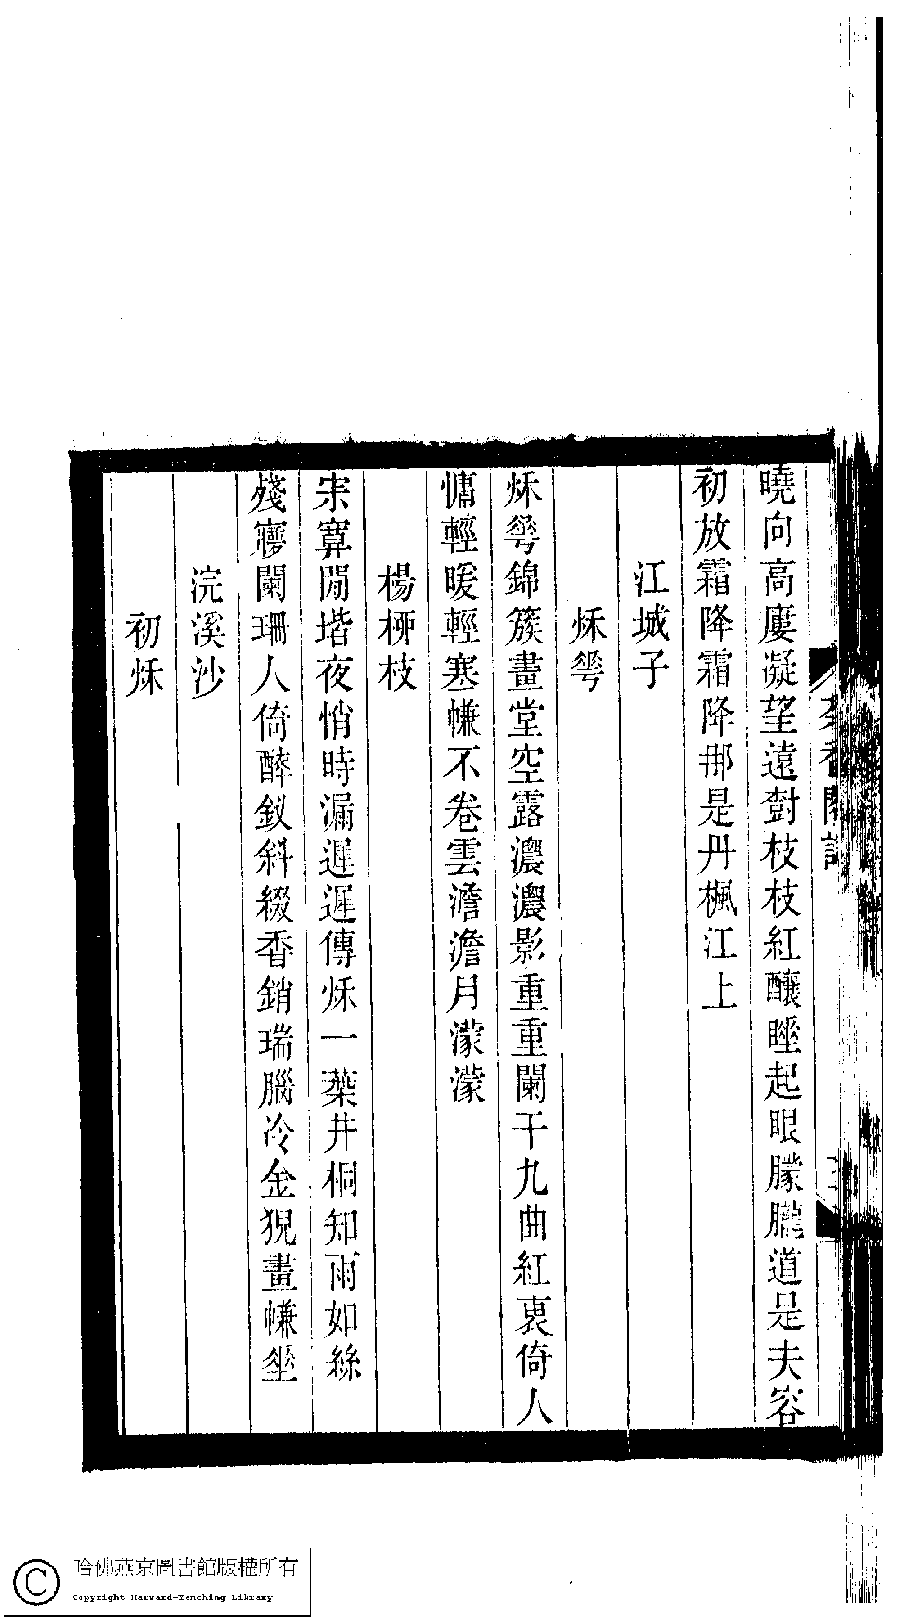 曉向高廔凝望遠對枝枝紅釀睡起眼朦朧道是夫容
初放霜降霜降那是丹楓江上
江城子
秌蕚
秌蕚錦簇畫堂空露濃濃影重重闌干九曲紅裏倚人
慵輕暖輕塞㡘不卷雲澹澹月濛濛
楊桺枝
宗寞閒堦夜悄時漏遲遲傳秌一葉井桐知雨如絲
殘㝱闌珊人倚醉釵斜綴香銷瑞腦冷金猊畫㡘垂
浣溪沙
初秌
哈佛燕京圖書館版權所有
Copyright Harvard-Yenching Library